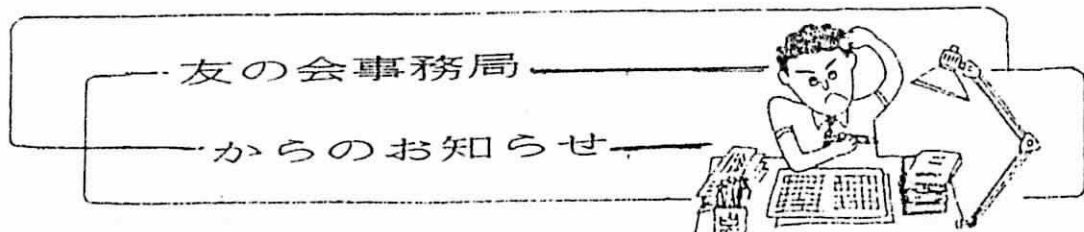 友の会事務局
からのお知らせ